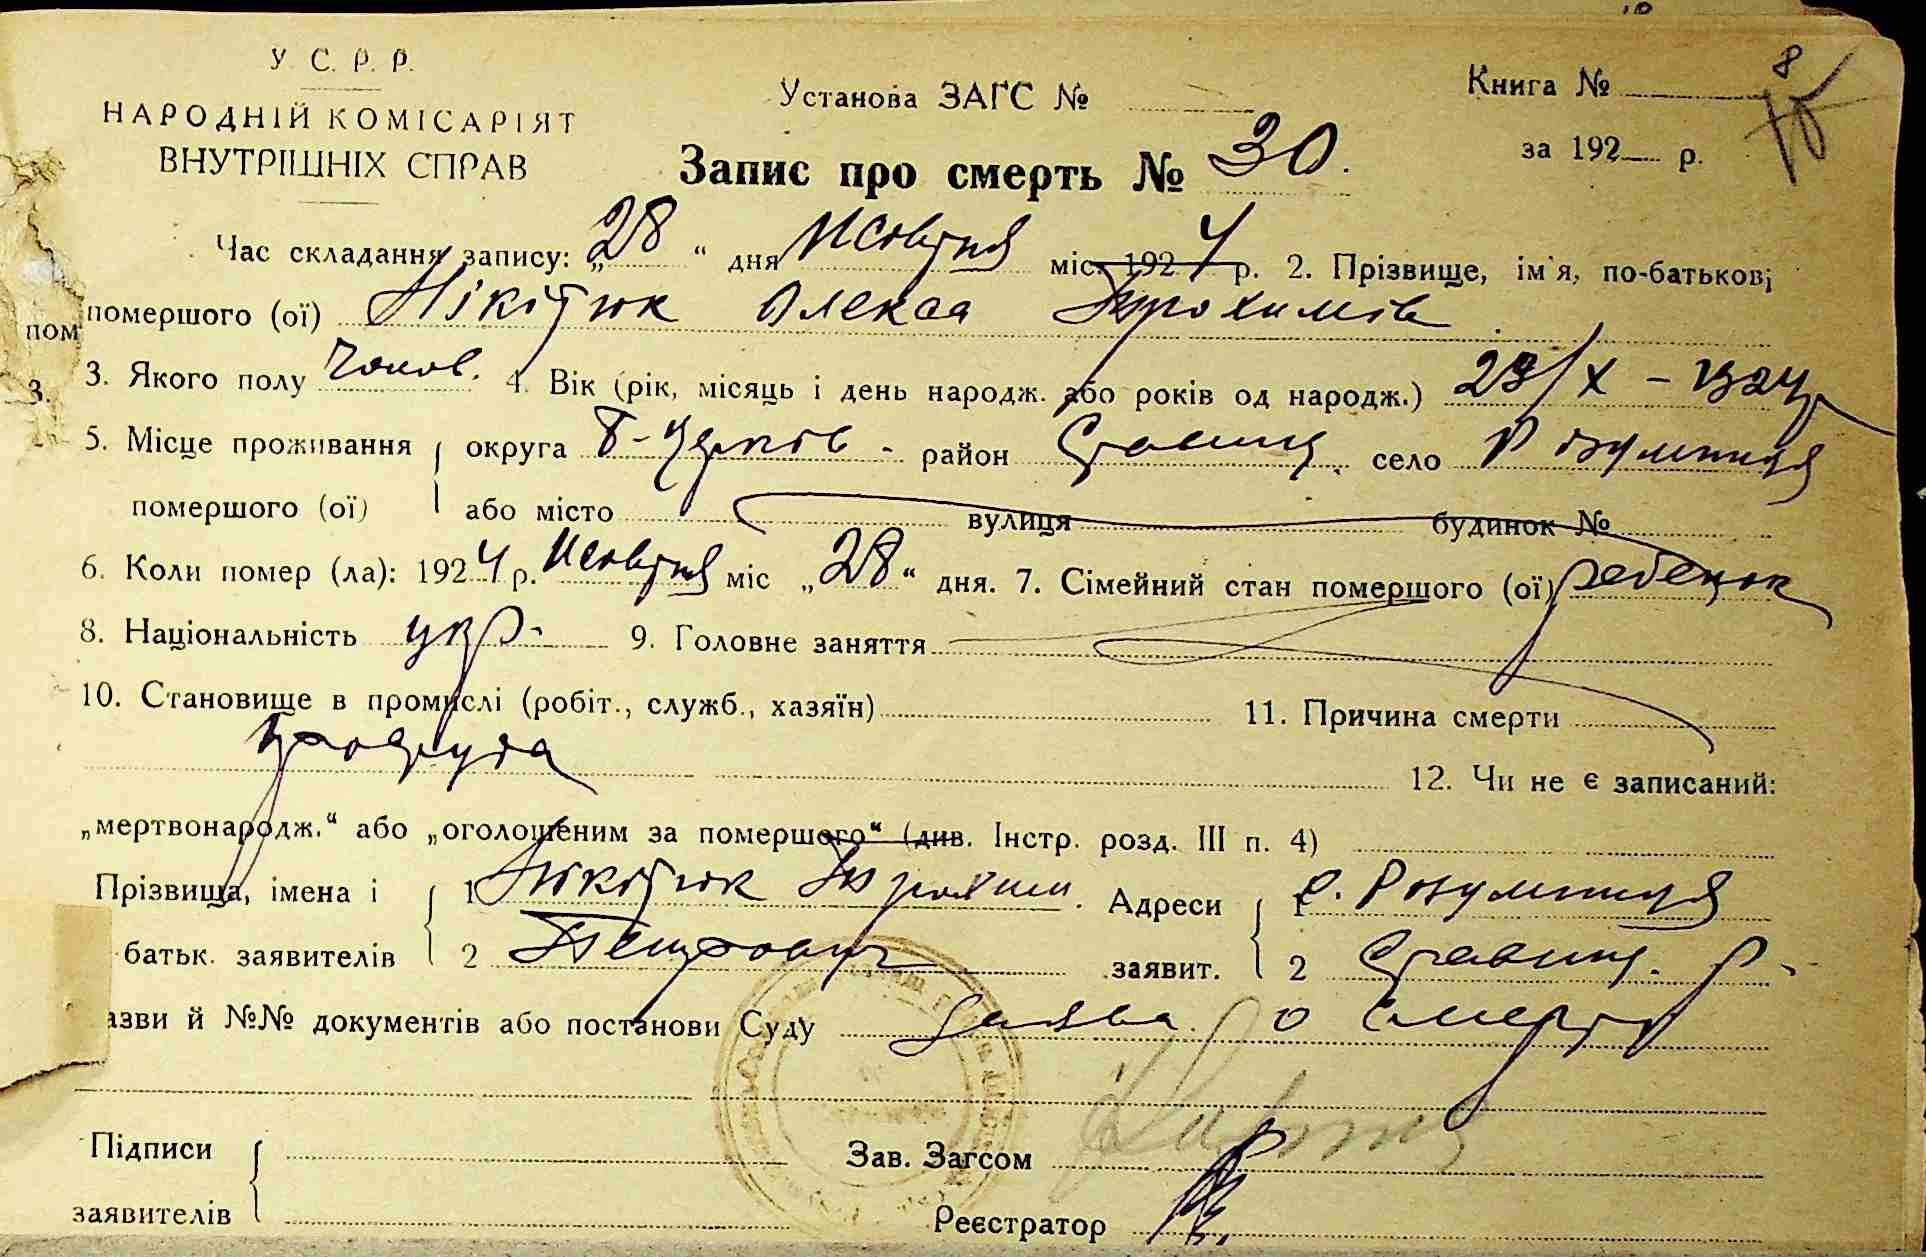 У. С. Р. Р.
НАРОДНІЙ КОМІСАРІЯТ
ВНУТРІШНІХ СПРАВ
Установа ЗАГС №
Книга №
8
за 192 р.
Запис про смерть № 30.
Час складання запису: „28“ дня Жовтня міс. 1924 р. 2. Прізвище, ім'я, по-батькові
помершого (ої) Нікітюк Олекса Трохимів
пом
3. Якого полу чолов. 4. Вік (рік, місяць і день народж. або років од народж.) 23/X – 1924 р
3.
5. Місце проживання округа Б-Церків - район Ставищ. село Розумниця
помершого (ої) або місто вулиця будинок №
6. Коли помер (ла): 1924 р. Жовтня міс „28“ дня. 7. Сімейний стан помершого (ої) ребенок
8. Національність укр- 9. Головне заняття
10. Становище в промислі (робіт., служб., хазяїн) 11. Причина смерти
простуда
12. Чи не є записаний:
„мертвонародж.“ або „оголошеним за помершого“ (див. Інстр. розд. III п. 4)
Прізвища, імена і 1 Нікітюк Трохим. Адреси 1 с. Розумниця
батьк. заявителів 2 Петрович заявит. 2 Ставищ. р-
азви й №№ документів або постанови Суду Заява о смерти
Підписи
Зав. Загсом
заявителів
Реєстратор